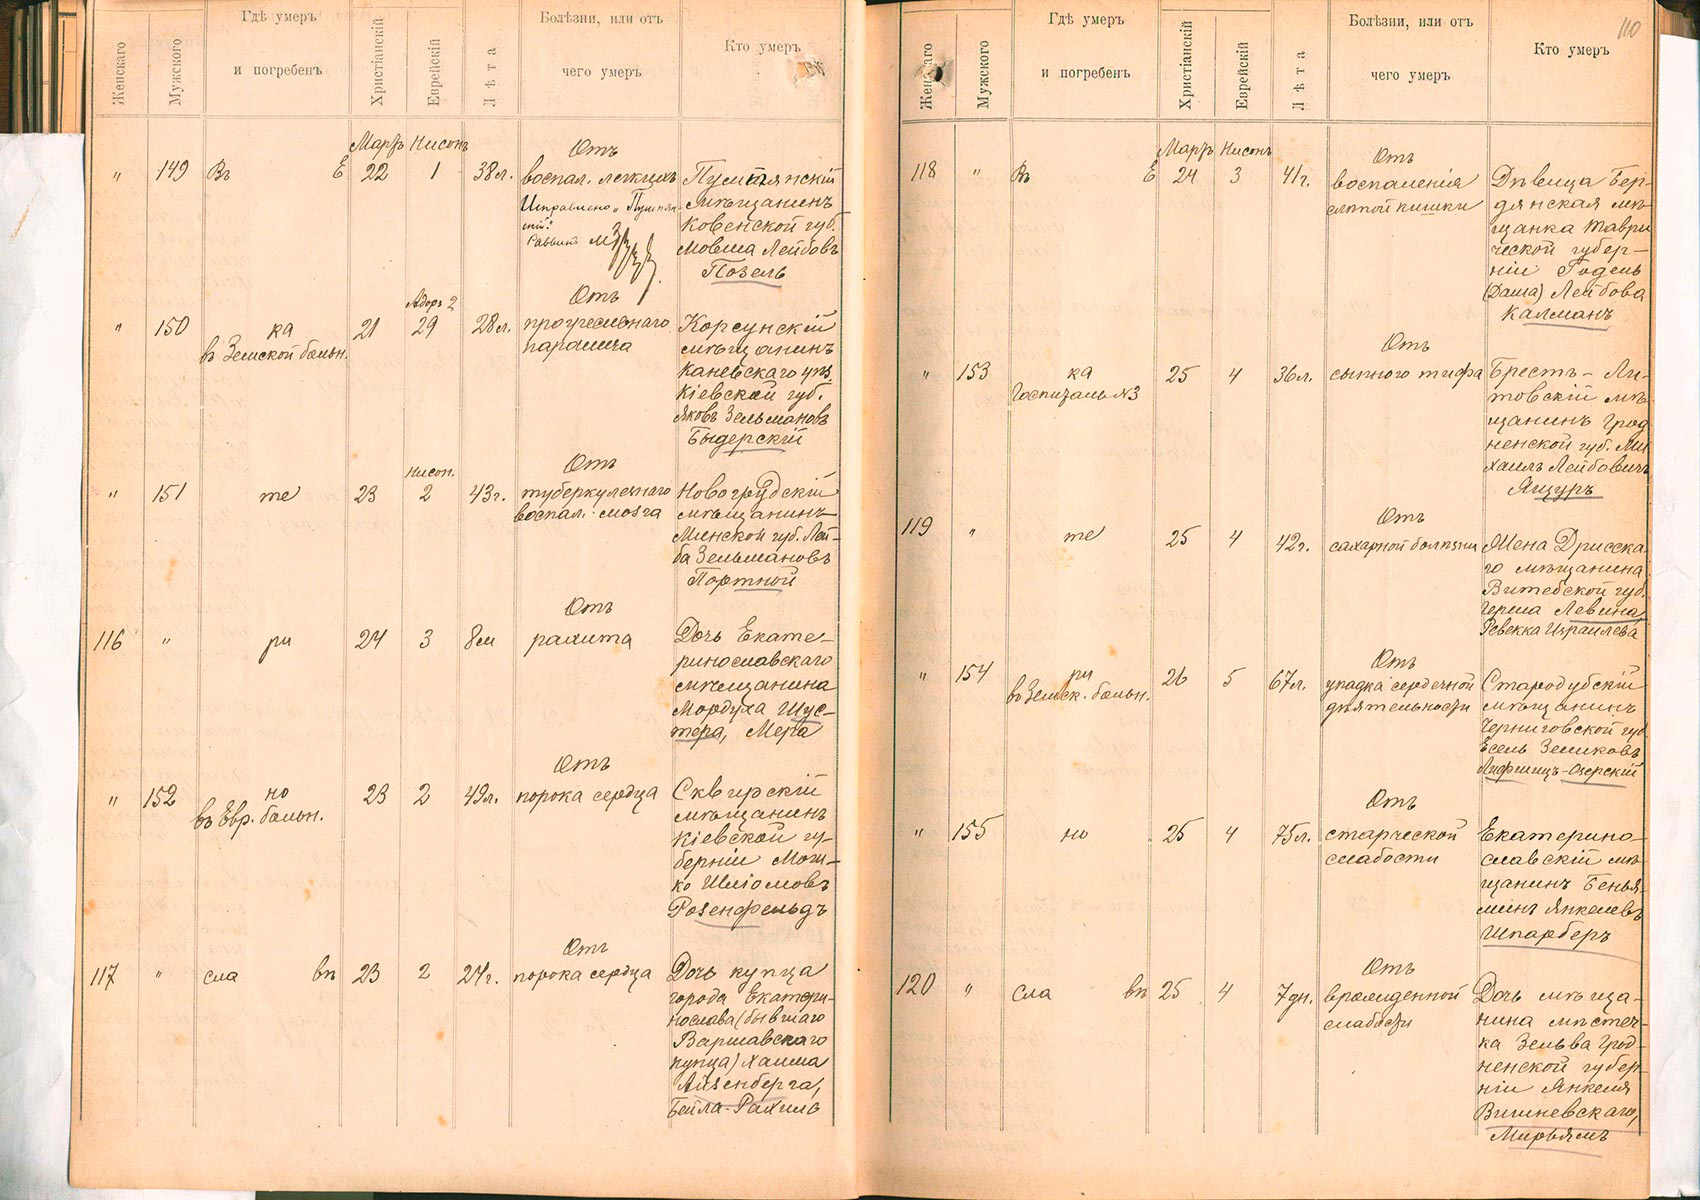 Женскаго
Мужского
Гдѣ умеръ
и погребенъ
Христіанскій
Еврейскій
Лѣта
Болѣзни, или отъ
чего умеръ
Кто умеръ
Мартъ Нисонъ
"
149
Въ Е
22
1
38 л.
Отъ
воспал. легкихъ
Исправлено "Пушлян-
скій"
Раввинъ
Пушлянскій
мѣщанинъ
Ковенской губ.
Мовша Лейбовъ
Позель
"
150
ка
въ Земской больн.
21
Адоръ 2
29
28 л.
Отъ
прогресивнаго
паралича
Корсунскій
мѣщанинъ
Каневскаго уѣз.
Кіевской губ.
Яковъ Зельмановъ
Быдерскій
"
151
те
23
Нисон.
2
43 г.
Отъ
туберкулезнаго
воспал. мозга
Новогрудскій
мѣщанинъ
Минской губ. Лей-
ба Зельмановъ
Портной
116
"
ри
24
3
8 м
Отъ
рахита
Дочь Екате-
ринославскаго
мѣщанина
Мордуха Шус-
тера, Мера
"
152
но
въ Евр. больн.
23
2
49 л.
Отъ
порока сердца
Сквирскій
мѣщанинъ
Кіевской гу-
берніи Мош-
ко Шліомовъ
Розенфельдъ
117
"
сла вѣ
23
2
24 г.
Отъ
порока сердца
Дочь купца
города Екатери-
нослава (бывшаго
Варшавскаго
купца) Хаима
Айзенберга,
Бейла-Рахиль
110
Женскаго
Мужского
Гдѣ умеръ
и погребенъ
Христіанскій
Еврейскій
Лѣта
Болѣзни, или отъ
чего умеръ
Кто умеръ
Мартъ Нисонъ
118
"
Въ Е
24
3
41 г.
Отъ
воспаленія
слѣпой кишки
Дѣвица Бер-
дянская мѣ-
щанка Таври
ческой губер-
ніи Годель
(Даша) Лейбова
Калманъ
"
153
ка
Госпиталь №3
25
4
36 л.
Отъ
сыпного тифа
Брестъ-Ли-
товскій мѣ-
щанинъ Грод
ненской губ. Ми
хаилъ Лейбовичъ
Ящуръ
119
"
те
25
4
42 г.
Отъ
сахарной болѣзни
Жена Дрисска-
го мѣщанина
Витебской губ.
Герша Левина,
Ревекка Израилева
"
154
ри
въ Земск. больн.
26
5
67 л.
Отъ
упадка сердечной
дѣятельности
Стародубскій
мѣщанинъ
Черниговской губ
Есель Зеликовъ
Лифшицъ-Озерскій
"
155
но
25
4
75 л.
Отъ
старческой
слабости
Екатерино-
славскій мѣ-
щанинъ Бенья-
минъ Янкелевъ
Шпарберъ
120
"
сла вѣ
25
4
7 дн.
Отъ
врожденной
слабости
Дочь мѣща-
нина мѣстеч-
ка Зельва Грод-
ненской губер-
ніи Янкеля
Вишневскаго,
Мирьямъ